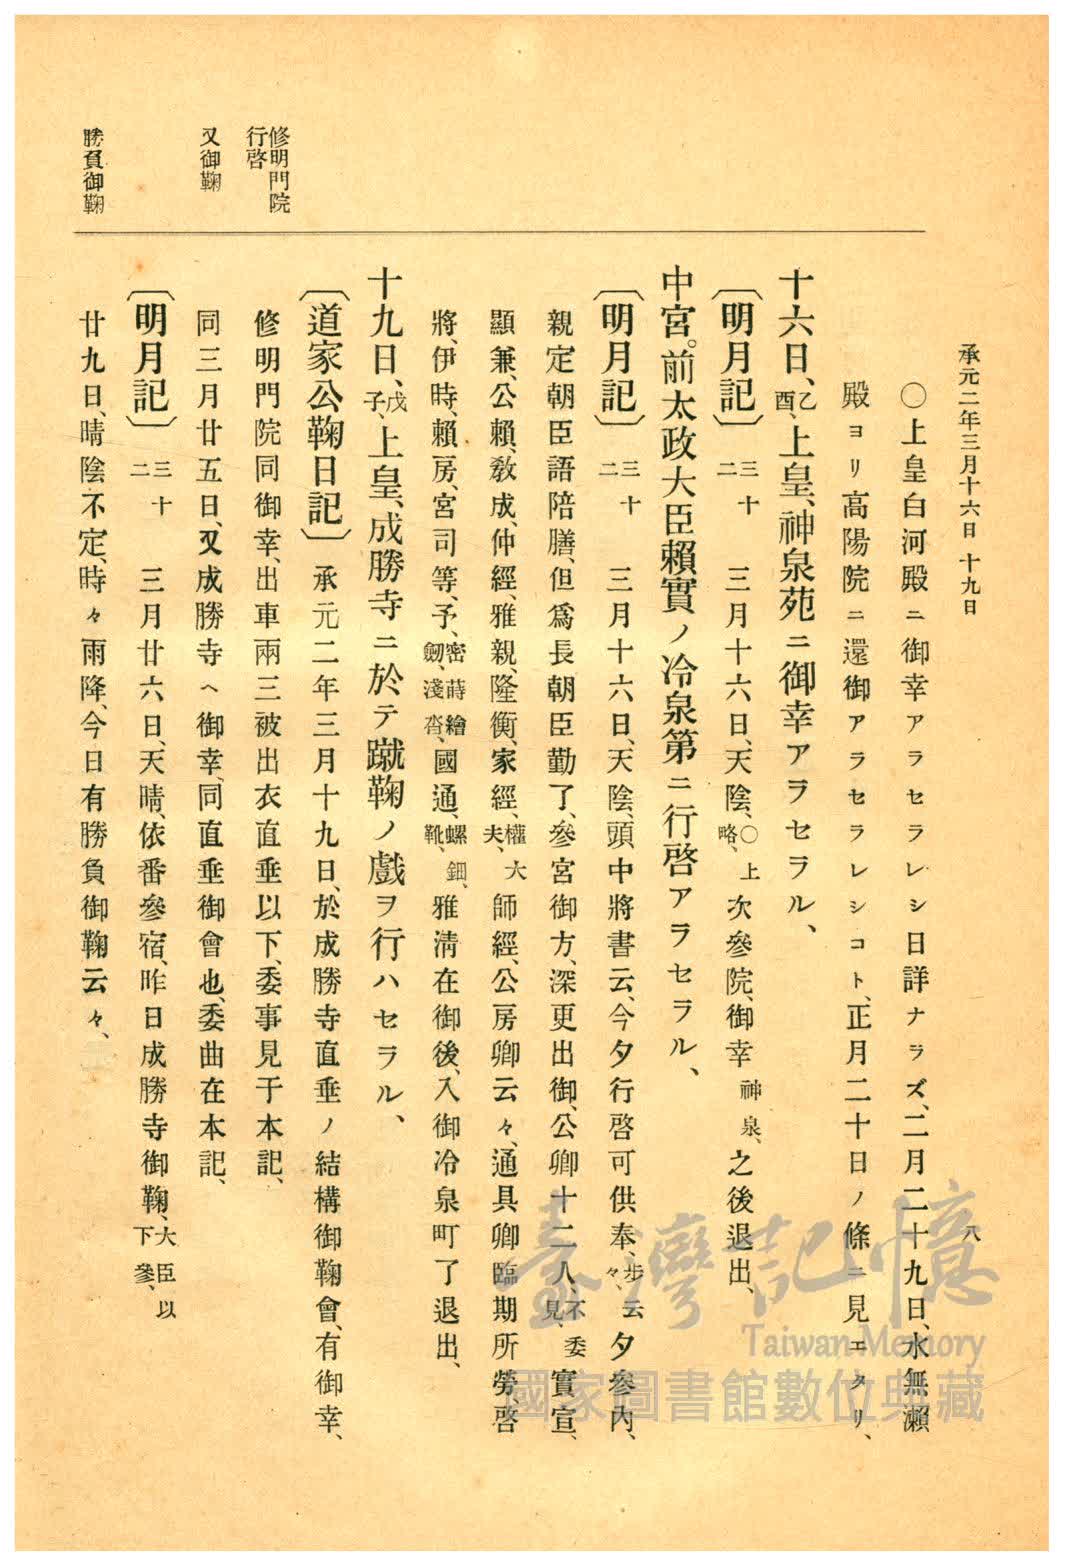 承元二年三月十六日 十九日
八
○上皇白河殿ニ御幸アラセラレシ日詳ナラズ、二月二十九日、水無瀬
殿ヨリ高陽院ニ還御アラセラレシコト、正月二十日ノ條ニ見エタリ、
十六日、乙酉、上皇、神泉苑ニ御幸アラセラル、
〔明月記〕 三十二 三月十六日、天陰、○上略、次參院、御幸神泉、之後退出、
中宮。前太政大臣賴實ノ冷泉第ニ行啓アラセラル、
〔明月記〕 三十二 三月十六日、天陰、頭中將書云、今夕行啓可供奉、步云々、夕參內、
親定朝臣語陪膳、但爲長朝臣勤了、參宮御方、深更出御、公卿十二人、不委見、實宣、
顯兼、公賴、敎成、仲經、雅親、隆衡、家經、權大夫、師經、公房卿云々、通具卿臨期所勞啓
將、伊時、賴房、宮司等、予、密蒔繪劒、淺沓、國通、螺鈿、靴、雅淸在御後、入御冷泉町了退出、
十九日、戊子、上皇、成勝寺ニ於テ蹴鞠ノ戲ヲ行ハセラル、
〔道家公鞠日記〕 承元二年三月十九日、於成勝寺直垂ノ結構御鞠會、有御幸、
修明門院同御幸、出車兩三被出衣直垂以下、委事見于本記、
同三月廿五日、又成勝寺ヘ御幸、同直垂御會也、委曲在本記、
〔明月記〕 三十二 三月廿六日、天晴、依番參宿、昨日成勝寺御鞠、大臣以下參、
廿九日、晴陰不定、時々雨降、今日有勝負御鞠云々、
修明門院
行啓
又御鞠
勝負御鞠
臺灣記憶
Taiwan Memory
國家圖書館數位典藏